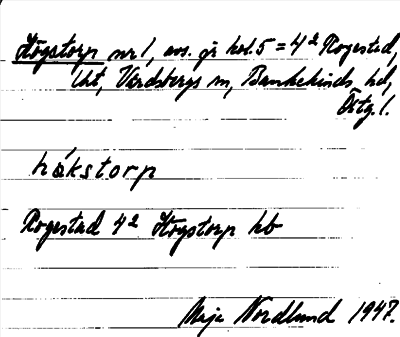 Högstorp nr 1, avs. jr kol. 5 = 4² Rogestad,
Uht, Vårdsbergs sn, Bankekinds hd,
Östg. l.
håkstorp
Rogestad 4² Högstorp hb
Maja Nordlund 1947.